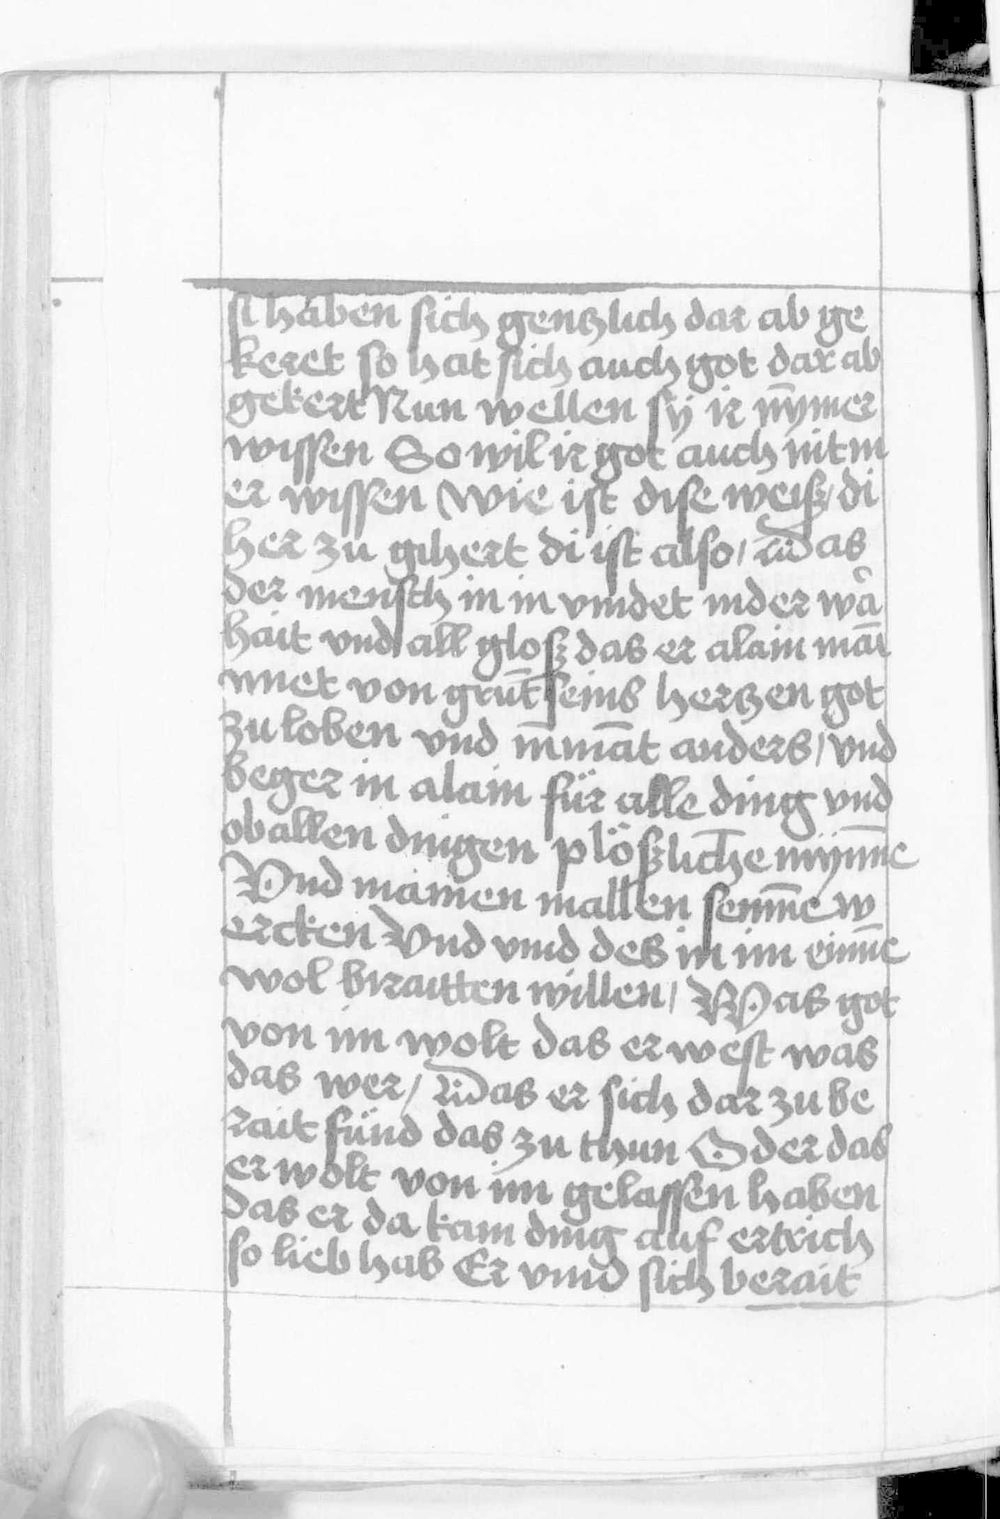 si haben sich gentzlich dar ab ge
keret so hat sich auch got dar ab
gekert Nun wellen sÿ ir nȳmer
wissen So wil ir got auch nit m
er wissen Wie ist dise weiss/ di
her zu gihert di ist also/ das
der mensch in in vindet inder wa
hait vnd all gloß das er alain mai
nnet von grūt seins hertzen got
zu loben vnd anders/ vnd
beger in alain für alle ding vnd
ob allen dingen plößliche
Vnd mainen in allen seinne w
ercken Vnd vind des in im einne
wol biraitten willen/ Was got
von im wolt das er west was
das wer/ das er sich dar zu be
rait fünd das zu thun Oder das
er wolt von im gelassen haben
das er da kain ding auf ertrich
so lieb hab Er vind sich berait